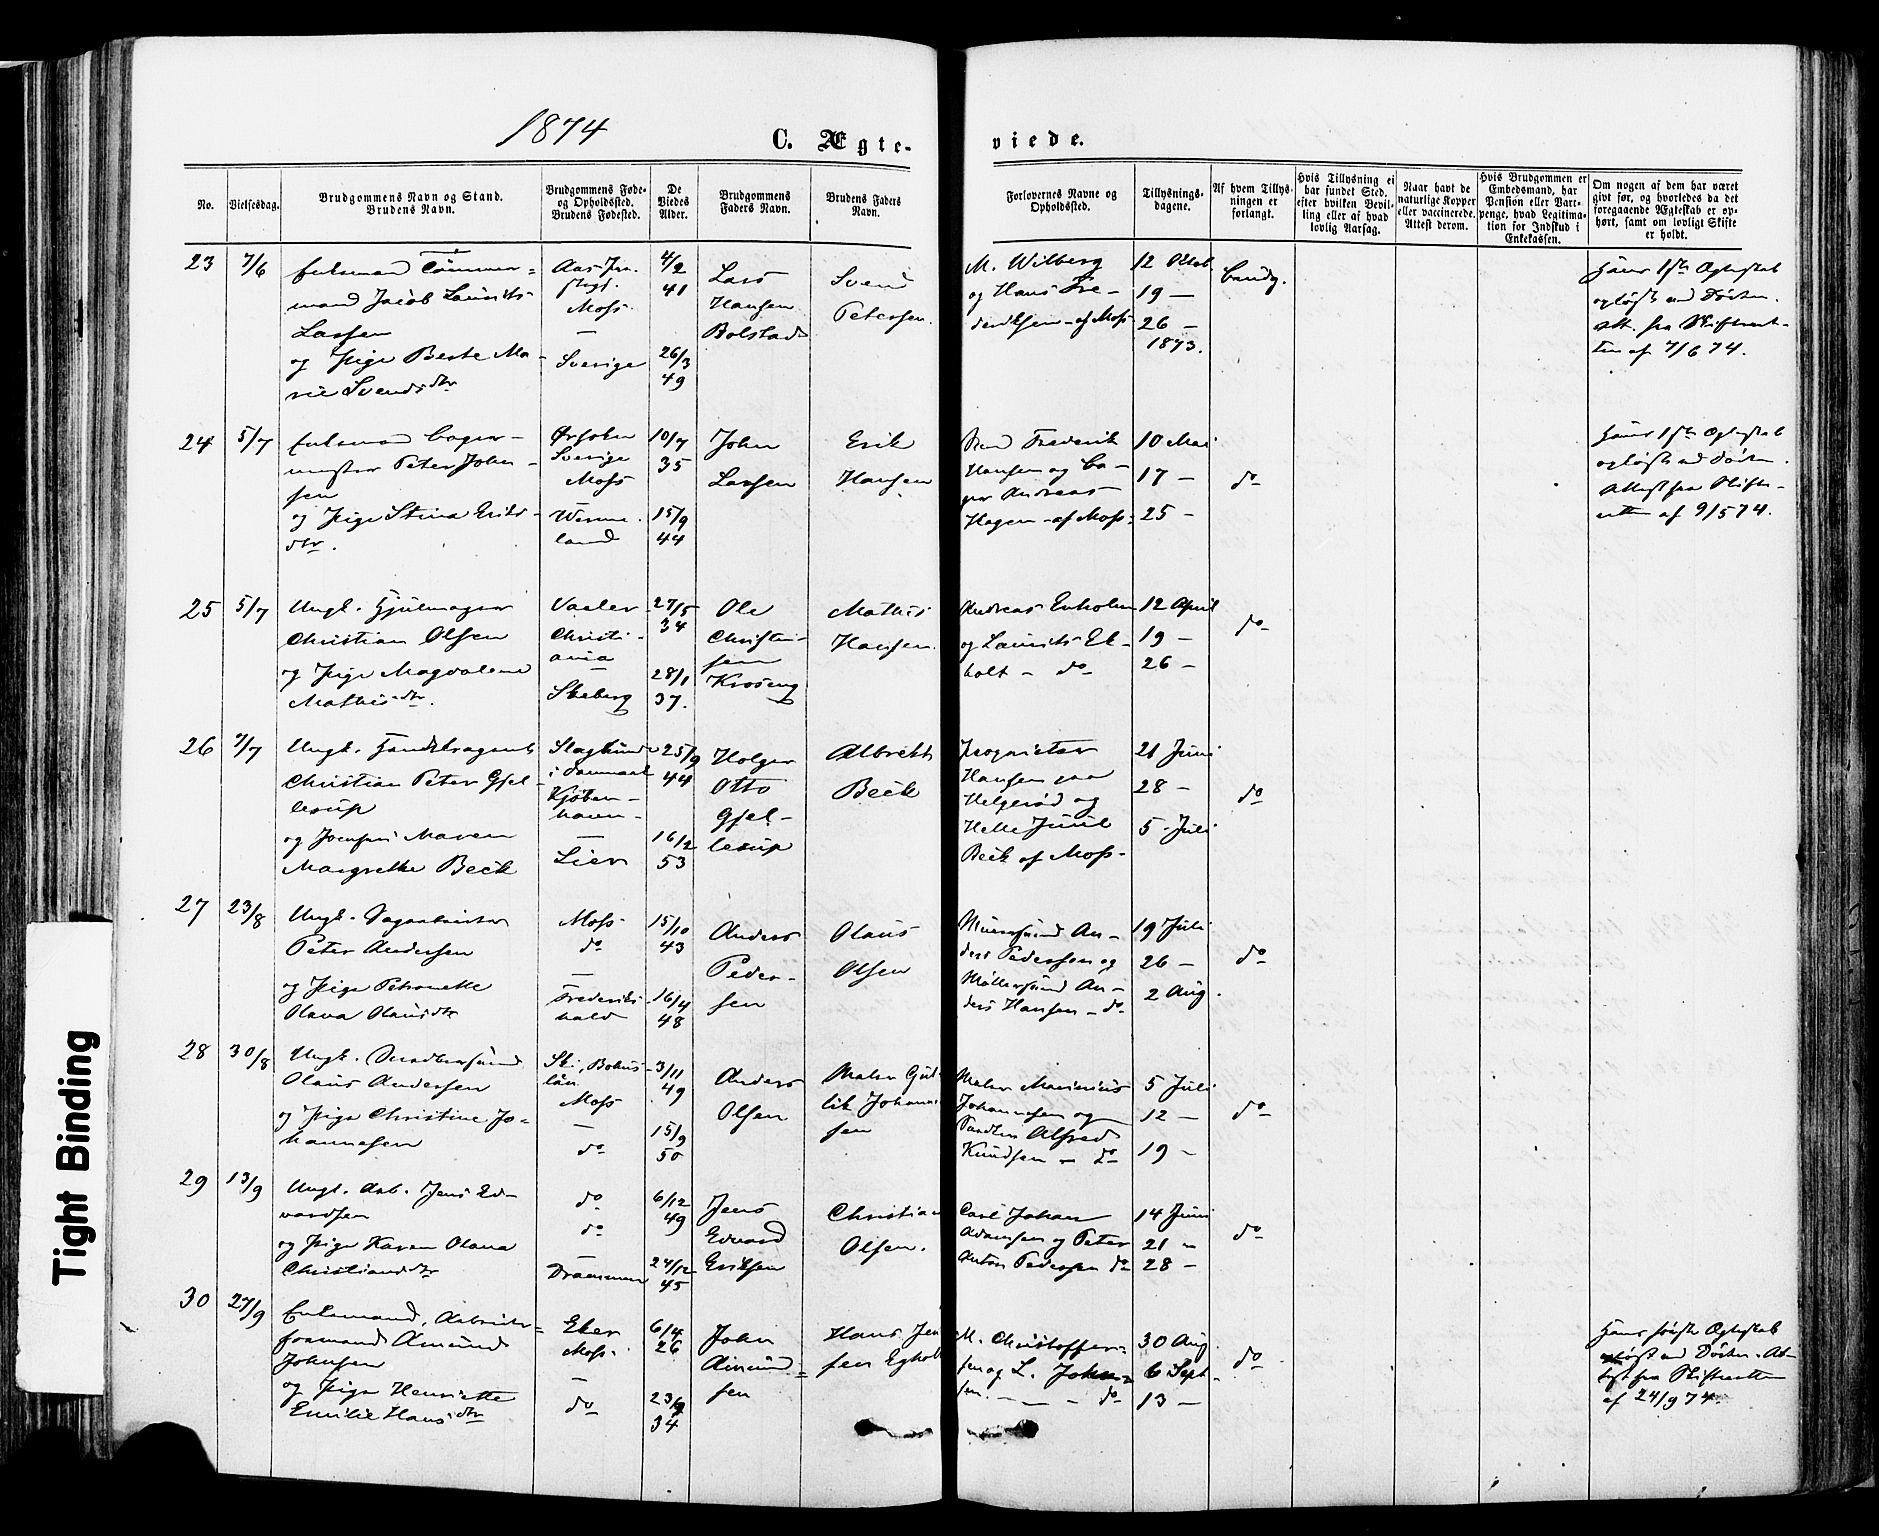 1874
C. Ægte-
viede.
No.
Vielsesdag.
Brudgommens Navn og Stand.
Brudens Navn.
Brudgommens Føde-
og Opholdssted.
Brudens Fødested.
De
Viedes
Alder.
Brudgommens
Faders Navn.
Brudens Faders
Navn.
Forlovernes Navne og
Opholdssted.
Tillysnings-
dagene.
Af hvem Tillys-
ningen er
forlangt.
Hvis Tillysning ei
har fundet Sted,
efter hvilken Bevil-
ling eller af hvad
lovlig Aarsag.
Naar havt de
naturlige Kopper
eller vaccinerede.
Attest derom.
Hvis Brudgommen er
Embedsmand, har
Pension eller Vart-
penge, hvad Legitima-
tion for Indskud i
Enkekassen.
Om nogen af dem har været
givt før, og hvorledes da det
foregaaende Ægteskab er op-
hørt, samt om lovligt Skifte
er holdt.
23
7/6
Enkemand Tømmer=
mand Jacob Laurits
Larsen
og Pige Beate Ma-
rie Svendsdtr
Moss
—
Sverige
4/2
41
26/3
49
Lars
Hansen
Bolstad
Svend
Petersen.
M. Wilberg
og Hans Fre-
deriksen - af Moss
12 Oktob.
19 —
26 —
1873.
Hans 1ste Ægteskab
opløst ved Døden.
Att. fra Skifteret-
ten af 7/6 74.
24
5/7
Enkemand Bager-
mester Peter John-
sen
og Pige Stina Eriks-
dtr.
Sverige
Moss
Werme-
land
10/7
35
15/9
44
John
Larsen
Erik
Hansen
Frederik
Hansen og Ba-
ger Andreas
Hagen - af Moss
10 Mai
17 —
25 —
do
Hans 1ste Ægteskab
opløst ved Døden.
Attest fra Skifte-
retten af 9/5 74.
25
5/7
Ungk. Hjulmager
Christian Olsen
og Pige Magdalene
Mathisdtr.
Vaaler
Christi-
ania
—
Skeberg
27/5
34
28/1
37.
Ole
Christen-
sen
Kroseng
Mathis
Hansen.
Andreas Enholm
og Laurits Ek-
holt - do
12 April
19 —
26 —
do
26
7/7
Ungk. Handelsagent
Christian Peter Gjel-
lerup
og Maren
Margrethe Beck
i Danmark
Kjøben-
havn
—
Lier
25/9
44
16/2
53
Holger
Otto
Gjel-
lerup
Albreth
Beck
Proprietær
Hansen paa
Helgerød og
Helle Juul
Beck af Moss
21 Juni
28 —
5 Juli
do
27
23/8
Ungk. Sagarbeider
Peter Andersen
og Pige Petronelle
Olava Olausdtr
Moss
do
—
Frederiks-
hald
15/10
43
16/4
48
Anders
Peder-
sen
Olaus
Olsen
An-
ders Pedersen og
Møllersvend An-
ders Hansen - do
19 Juli
26 —
2 Aug.
do
28
30/8
Ungk.
Olaus Andersen
og Pige Christine Jo-
hannesen
Bohus-
län
Moss
—
do
3/11
49
15/9
50
Anders
Olsen
Maler Gud-
lik Johannes
sen
Maler Marinius
Johannesen og
Alfred
Knudsen - do
5 Juli
12 —
19 —
do
29
13/9
Ungk. Arb. Jens Ed-
vardsen
og Pige Karen Olava
Christiansdtr
do
do
—
Drammen
6/12
49
24/12
45
Jens
Edvard
Eriksen
Christian
Olsen.
Carl Johan
Adamsen og Peter
Anton Pedersen do
14 Juni
21 —
28 —
do
30
27/9
Enkemand, Arbeids=
formand Amund
Johnsen
og Pige Henriette
Emilie Hansdtr
Eker
Moss.
—
do
6/4
26
23/9
34
John
Amund=
sen
Hans Jen
sen Egholt
M. Christoffer-
sen og L. John=
sen. — — do
30 Aug.
6 Sept.
13 —
do
Hans første Ægteskab
opløst ved Døden. At-
test fra Skifteretten
af 24/9 74.
Tight Binding